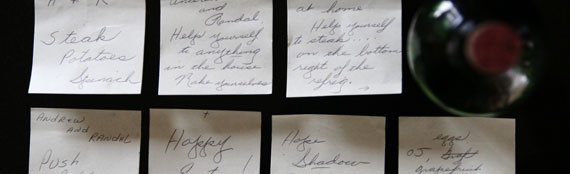 A + R
Steak
Potatoes
Spinach
and
Randal
Help yourself
to anything
in the house
Make yourselves
at home.
Help yourself
to steak....
on the bottom
right of the
refrig.
ANDREW
AND
RANDAL
PUSH
Happy
Hope
Shadow
eggs
OJ,
grapefruit